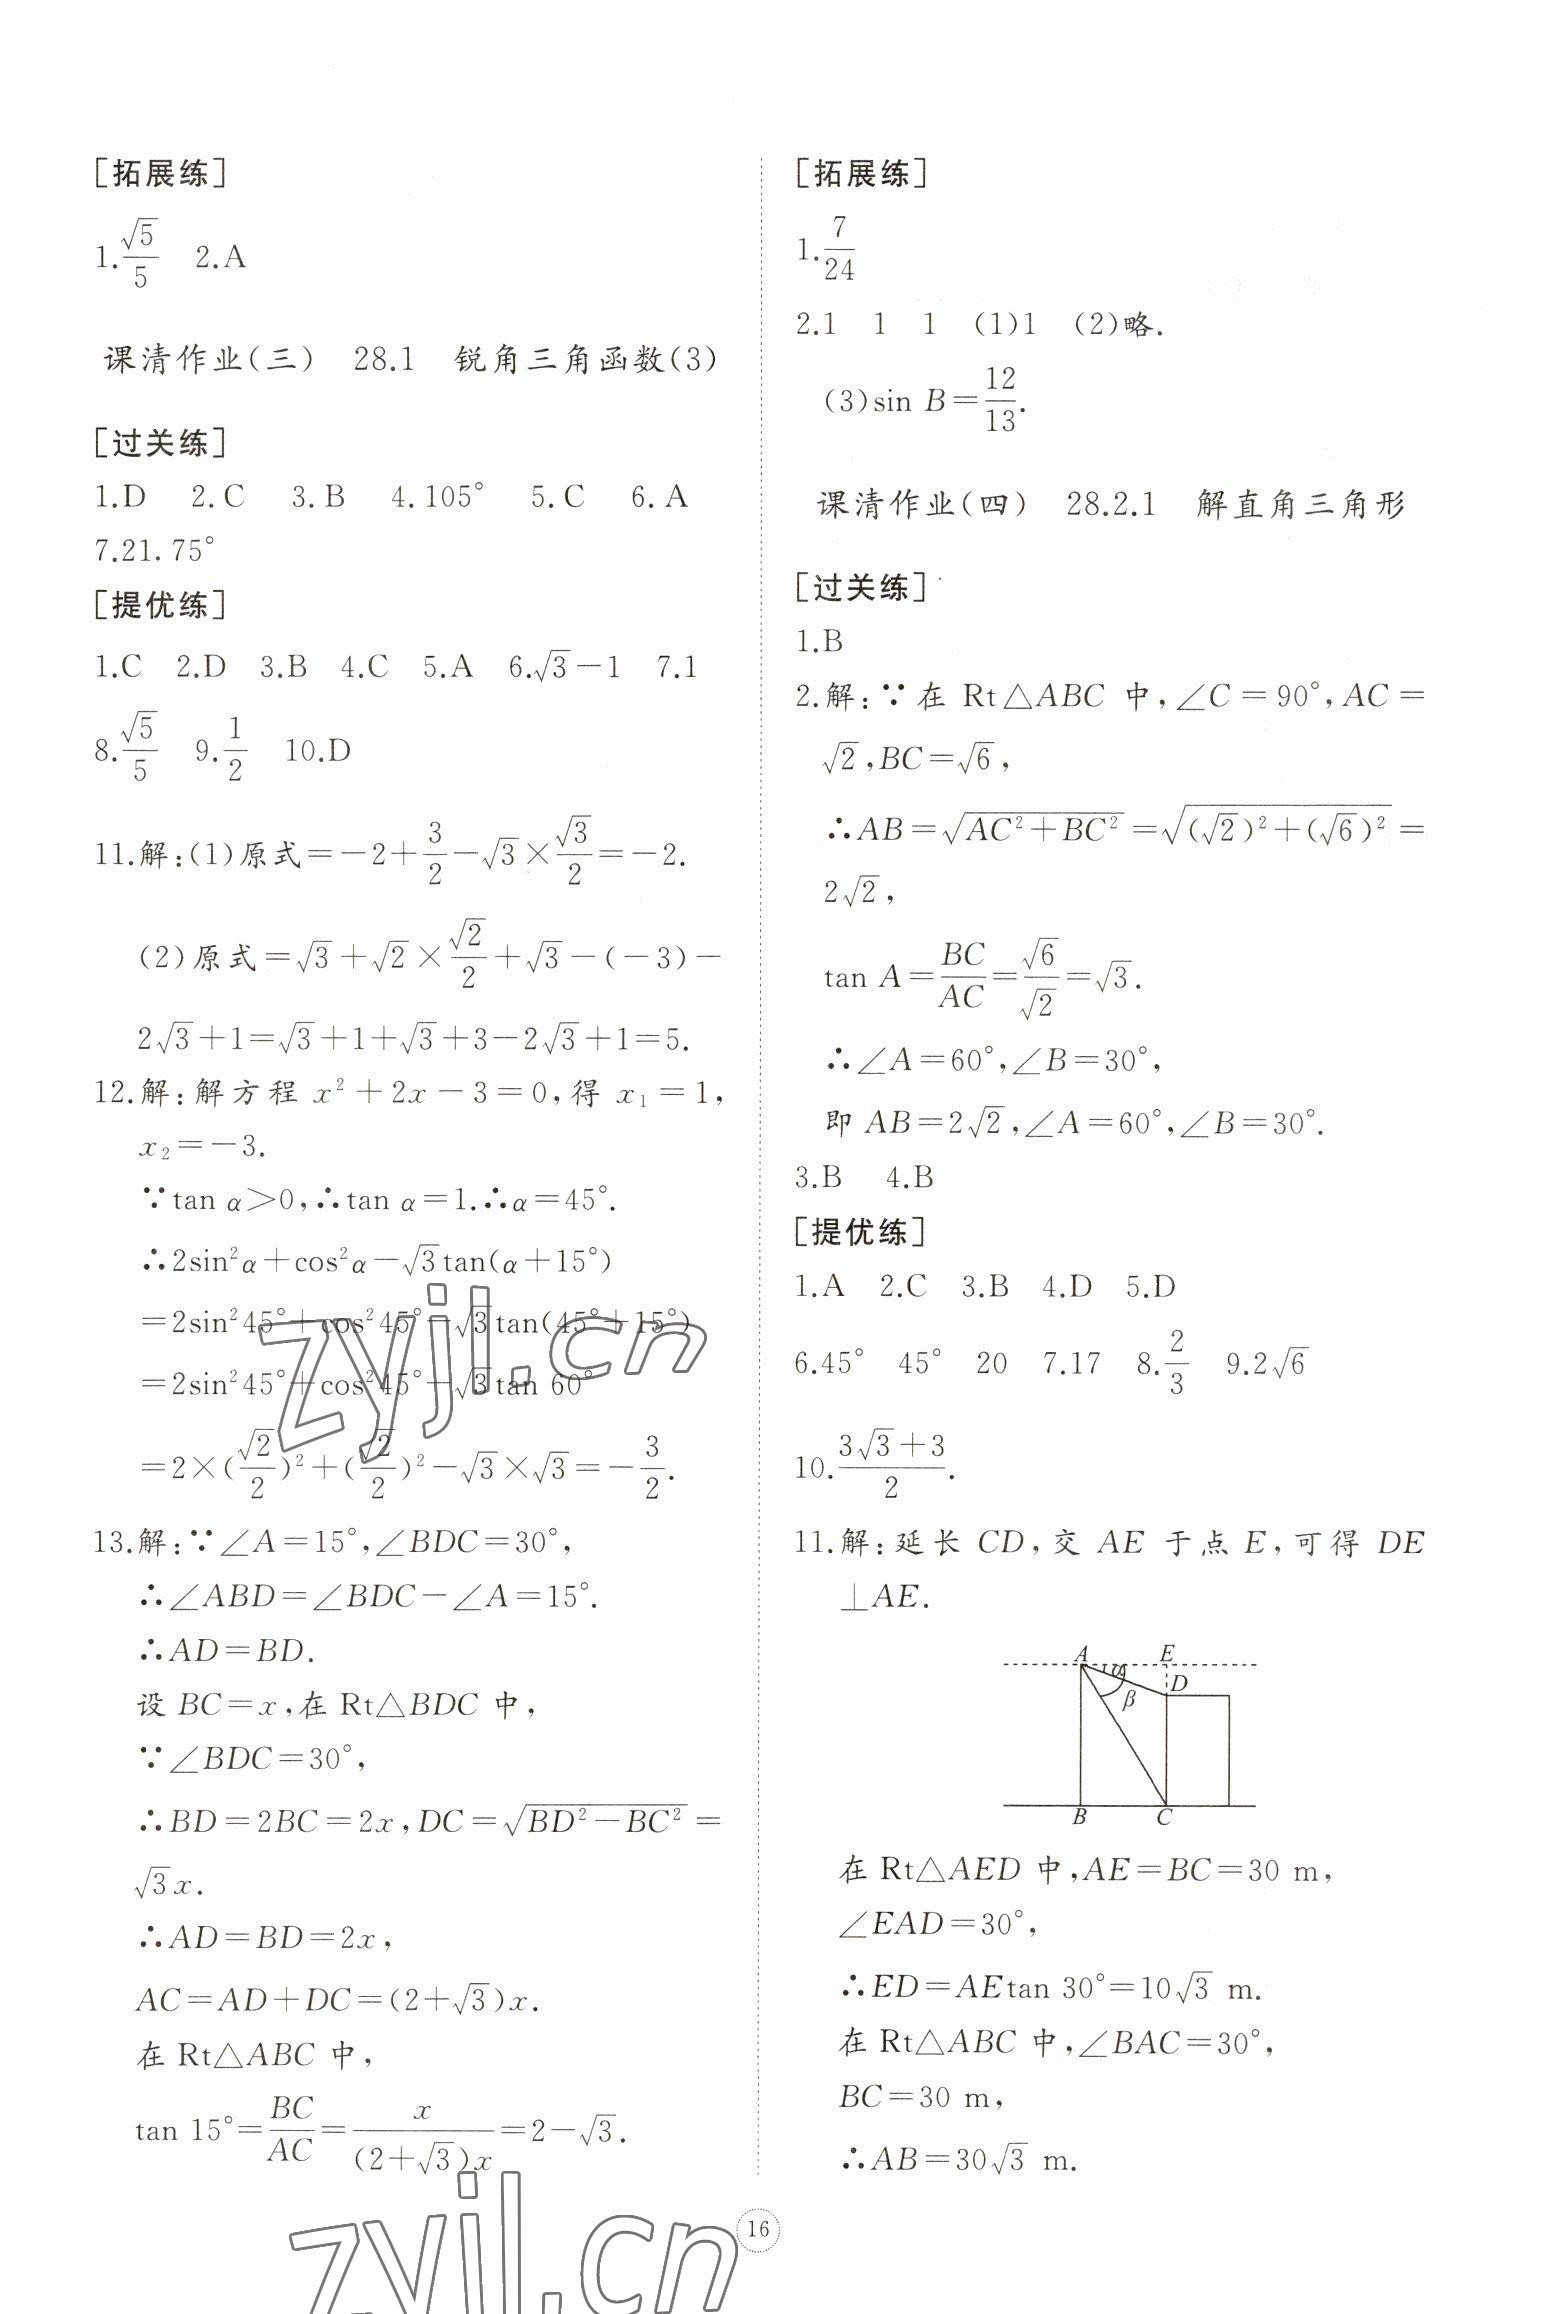 [拓展练]
1.√5/5 2.A
课清作业(三) 28.1 锐角三角函数(3)
[过关练]
1.D 2.C 3.B 4.105° 5.C 6.A
7.21.75°
[提优练]
1.C 2.D 3.B 4.C 5.A 6.√3-1 7.1
8.√5/5 9.1/2 10.D
11.解:(1)原式=-2+3/2-√3×√3/2=-2.
(2)原式=√3+√2×√2/2+√3-(-3)-
2√3+1=√3+1+√3+3-2√3+1=5.
12.解:解方程 x²+2x-3=0,得 x₁=1,
x₂=-3.
∵tan α>0,∴tan α=1.∴α=45°.
∴2sin²α+cos²α-√3tan(α+15°)
=2sin²45°+cos²45°-√3tan(45°+15°)
=2sin²45°+cos²45°-√3tan 60°
=2×(√2/2)²+(√2/2)²-√3×√3=-3/2.
13.解:∵∠A=15°,∠BDC=30°,
∴∠ABD=∠BDC-∠A=15°.
∴AD=BD.
设 BC=x,在 Rt△BDC 中,
∵∠BDC=30°,
∴BD=2BC=2x,DC=√(BD²-BC²)=
√3x.
∴AD=BD=2x,
AC=AD+DC=(2+√3)x.
在 Rt△ABC 中,
tan 15°=BC/AC=x/((2+√3)x)=2-√3.
[拓展练]
1.7/24
2.1 1 1 (1)1 (2)略.
(3)sin B=12/13.
课清作业(四) 28.2.1 解直角三角形
[过关练]
1.B
2.解:∵在 Rt△ABC 中,∠C=90°,AC=
√2,BC=√6,
∴AB=√(AC²+BC²)=√((√2)²+(√6)²)=
2√2,
tan A=BC/AC=√6/√2=√3.
∴∠A=60°,∠B=30°,
即 AB=2√2,∠A=60°,∠B=30°.
3.B 4.B
[提优练]
1.A 2.C 3.B 4.D 5.D
6.45° 45° 20 7.17 8.2/3 9.2√6
10.(3√3+3)/2.
11.解:延长 CD,交 AE 于点 E,可得 DE
⊥AE.
A E
α D
β
B C
在 Rt△AED 中,AE=BC=30 m,
∠EAD=30°,
∴ED=AEtan 30°=10√3 m.
在 Rt△ABC 中,∠BAC=30°,
BC=30 m,
∴AB=30√3 m.
16
zyjl.cn
zyjl.cn